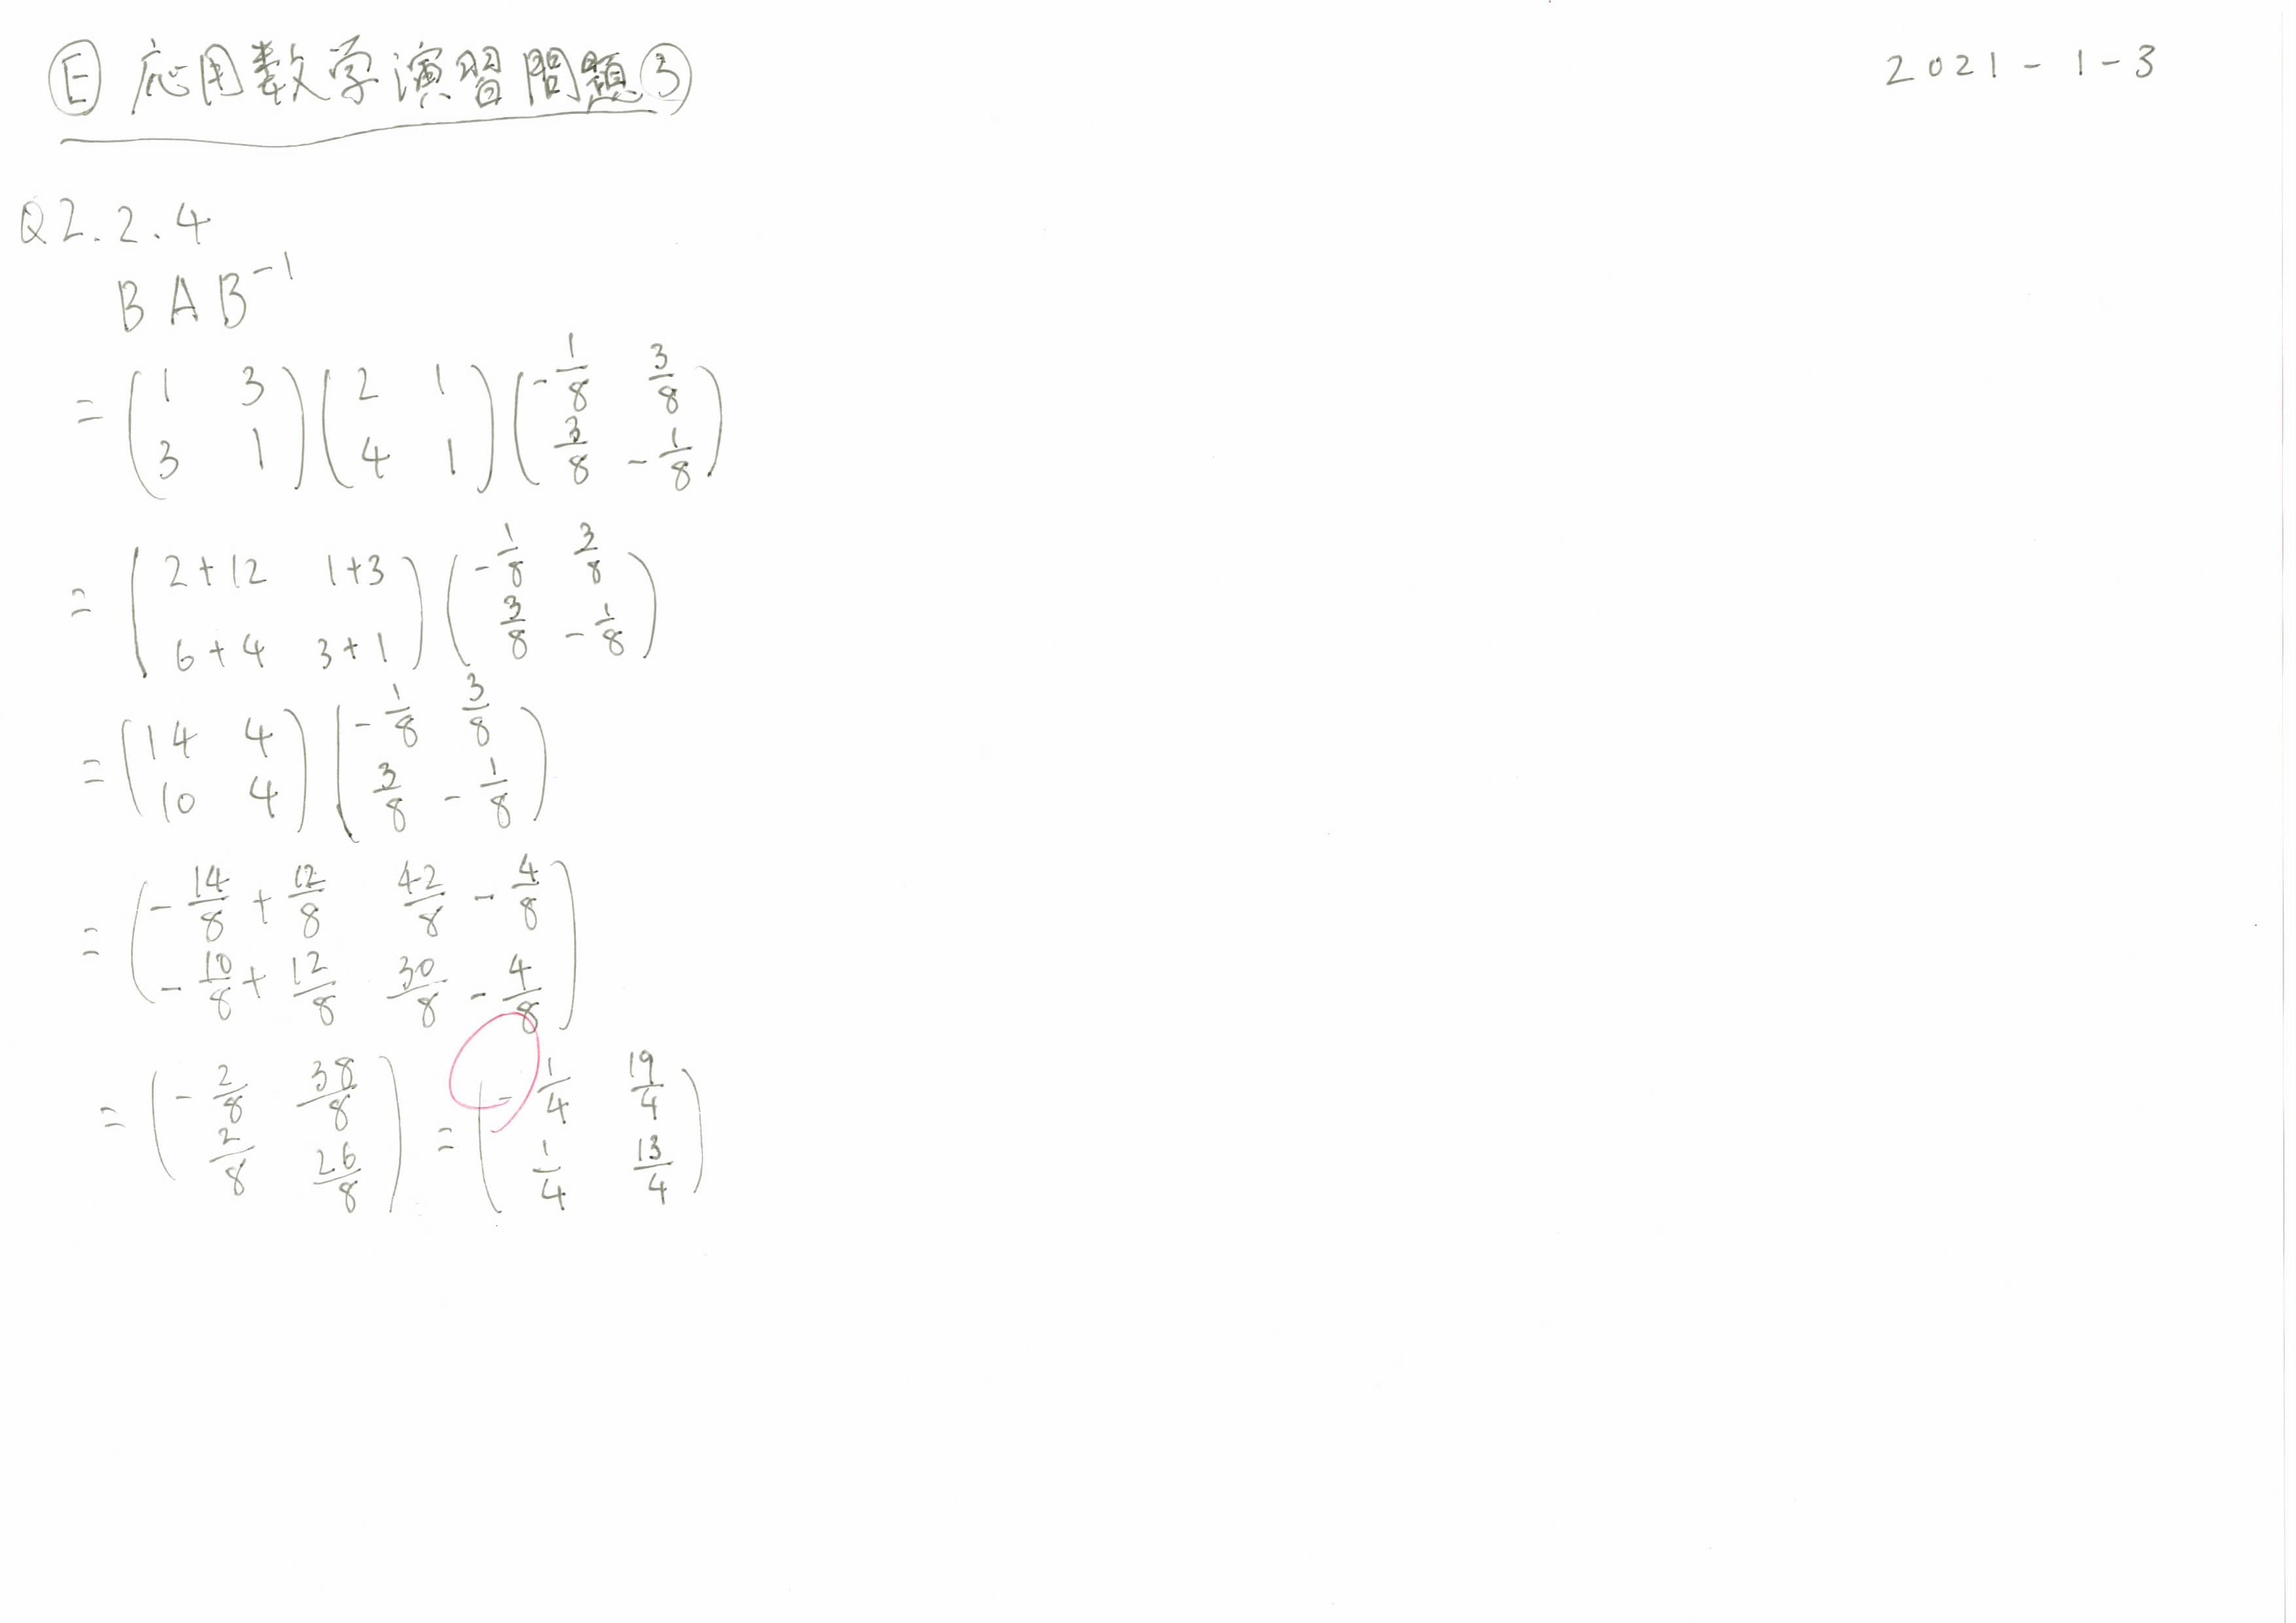 Ⓔ 応用数学演習問題③
2021-1-3
Q2.2.4
BAB⁻¹
= (1 3; 3 1)(2 1; 4 1)(-1/8 3/8; 3/8 -1/8)
= (2+12 1+3; 6+4 3+1)(-1/8 3/8; 3/8 -1/8)
= (14 4; 10 4)(-1/8 3/8; 3/8 -1/8)
= (-14/8+12/8 42/8-4/8; -10/8+12/8 30/8-4/8)
= (-2/8 38/8; 2/8 26/8) = (-1/4 19/4; 1/4 13/4)